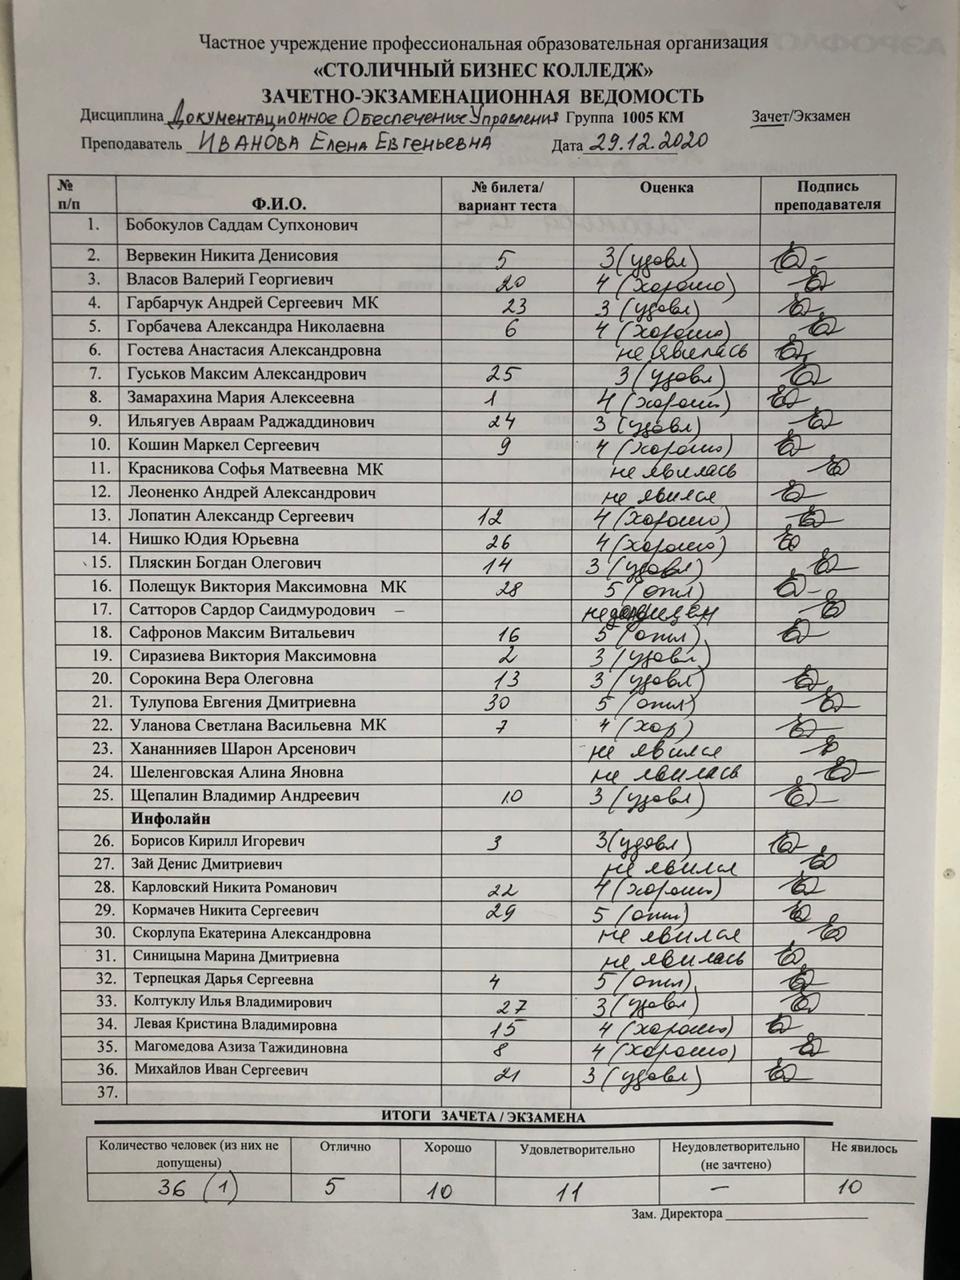 Частное учреждение профессиональная образовательная организация
«СТОЛИЧНЫЙ БИЗНЕС КОЛЛЕДЖ»
ЗАЧЕТНО-ЭКЗАМЕНАЦИОННАЯ ВЕДОМОСТЬ
Дисциплина Документационное Обеспечение Управления Группа 1005 КМ Зачет/Экзамен
Преподаватель Иванова Елена Евгеньевна Дата 29.12.2020
№ п/п Ф.И.О. № билета/ вариант теста Оценка Подпись преподавателя
1. Бобокулов Саддам Супхонович
2. Вервекин Никита Денисовия 5 3 (удовл)
3. Власов Валерий Георгиевич 20 4 (хорошо)
4. Гарбарчук Андрей Сергеевич МК 23 3 (удовл)
5. Горбачева Александра Николаевна 6 4 (хорошо)
6. Гостева Анастасия Александровна не явилась
7. Гуськов Максим Александрович 25 3 (удовл)
8. Замарахина Мария Алексеевна 1 4 (хорошо)
9. Ильягуев Авраам Раджаддинович 24 3 (удовл)
10. Кошин Маркел Сергеевич 9 4 (хорошо)
11. Красникова Софья Матвеевна МК не явилась
12. Леоненко Андрей Александрович не явился
13. Лопатин Александр Сергеевич 12 4 (хорошо)
14. Нишко Юдия Юрьевна 26 4 (хорошо)
15. Пляскин Богдан Олегович 14 3 (удовл)
16. Полещук Виктория Максимовна МК 28 5 (отл)
17. Сатторов Сардор Саидмуродович – недопущен
18. Сафронов Максим Витальевич 16 5 (отл)
19. Сиразиева Виктория Максимовна 2 3 (удовл)
20. Сорокина Вера Олеговна 13 3 (удовл)
21. Тулупова Евгения Дмитриевна 30 5 (отл)
22. Уланова Светлана Васильевна МК 7 4 (хор)
23. Хананнияев Шарон Арсенович не явился
24. Шеленговская Алина Яновна не явилась
25. Щепалин Владимир Андреевич 10 3 (удовл)
Инфолайн
26. Борисов Кирилл Игоревич 3 3 (удовл)
27. Зай Денис Дмитриевич не явился
28. Карловский Никита Романович 22 4 (хорошо)
29. Кормачев Никита Сергеевич 29 5 (отл)
30. Скорлупа Екатерина Александровна не явился
31. Синицына Марина Дмитриевна не явилась
32. Терпецкая Дарья Сергеевна 4 5 (отл)
33. Колтуклу Илья Владимирович 27 3 (удовл)
34. Левая Кристина Владимировна 15 4 (хорошо)
35. Магомедова Азиза Тажидиновна 8 4 (хорошо)
36. Михайлов Иван Сергеевич 21 3 (удовл)
37.
ИТОГИ ЗАЧЕТА / ЭКЗАМЕНА
Количество человек (из них не допущены) Отлично Хорошо Удовлетворительно Неудовлетворительно (не зачтено) Не явилось
36 (1) 5 10 11 – 10
Зам. Директора